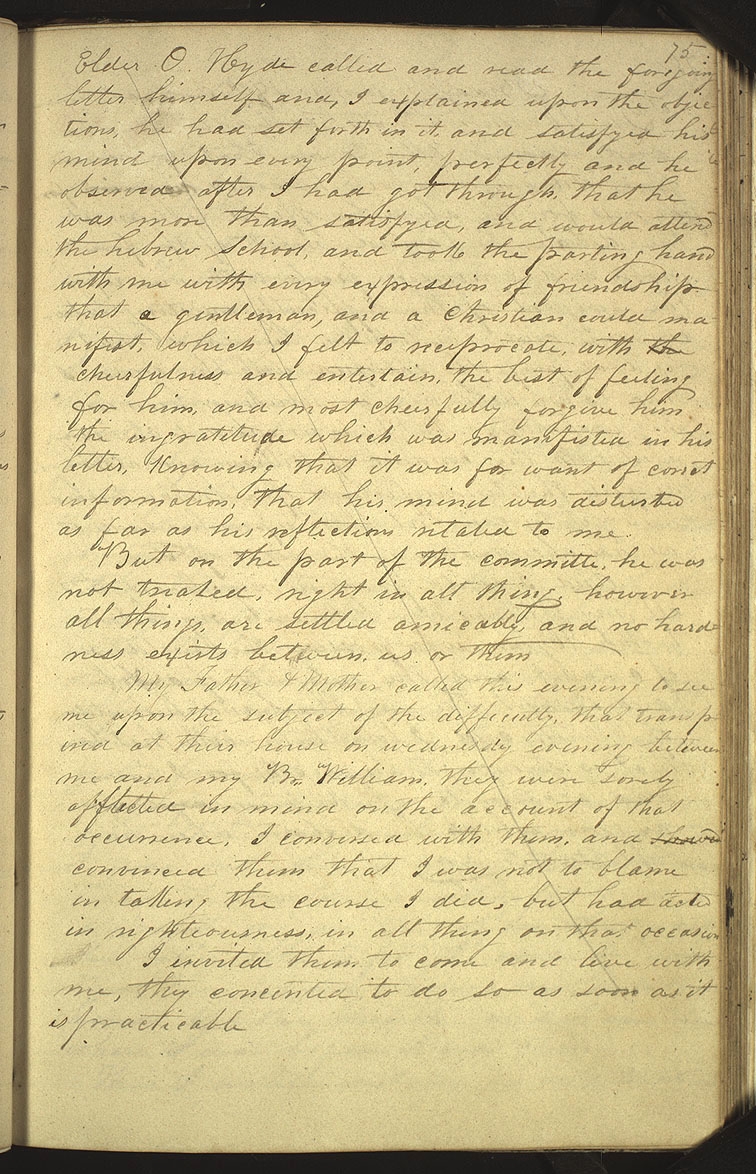 75
Elder O. Hyde called and read the foregoing
letter himself and, I explained upon the objec
tions, he had set forth in it, and satisfyed his
mind upon every point, perfectly and he
observed after I had got through, that he
was more than satisfyed, and would attend
the hebrew school, and took the parting hand
with me with every expression of friendship
that a gentleman, and a Christian could ma
nifest, which I felt to reciprocate, with the
cheerfulness and entertain, the best of feeling
for him, and most cheerfully forgive him
the ingratitude which was manifisted in his
letter, knowing that it was for want of corect
information, that his mind was disturbed
as far as his reflections related to me.
But on the part of the committe, he was
not treated, right in all thing, however
all things, are settled amicably, and no hard
ness exists between, us or them
My Father & Mother called this evening to see
me upon the subject of the difficulty, that transp
ired at their house on wednesdy evening between
me and my Br. William, they were sorely
afflicted in mind on the account of that
occurrence, I conversed with them, and showed
convinced them that I was not to blame
in taking the course I did, but had acted
in righteousness, in all thing on that occasion
I invited them to come and live with
me, they concented to do so as soon as it
is practicable